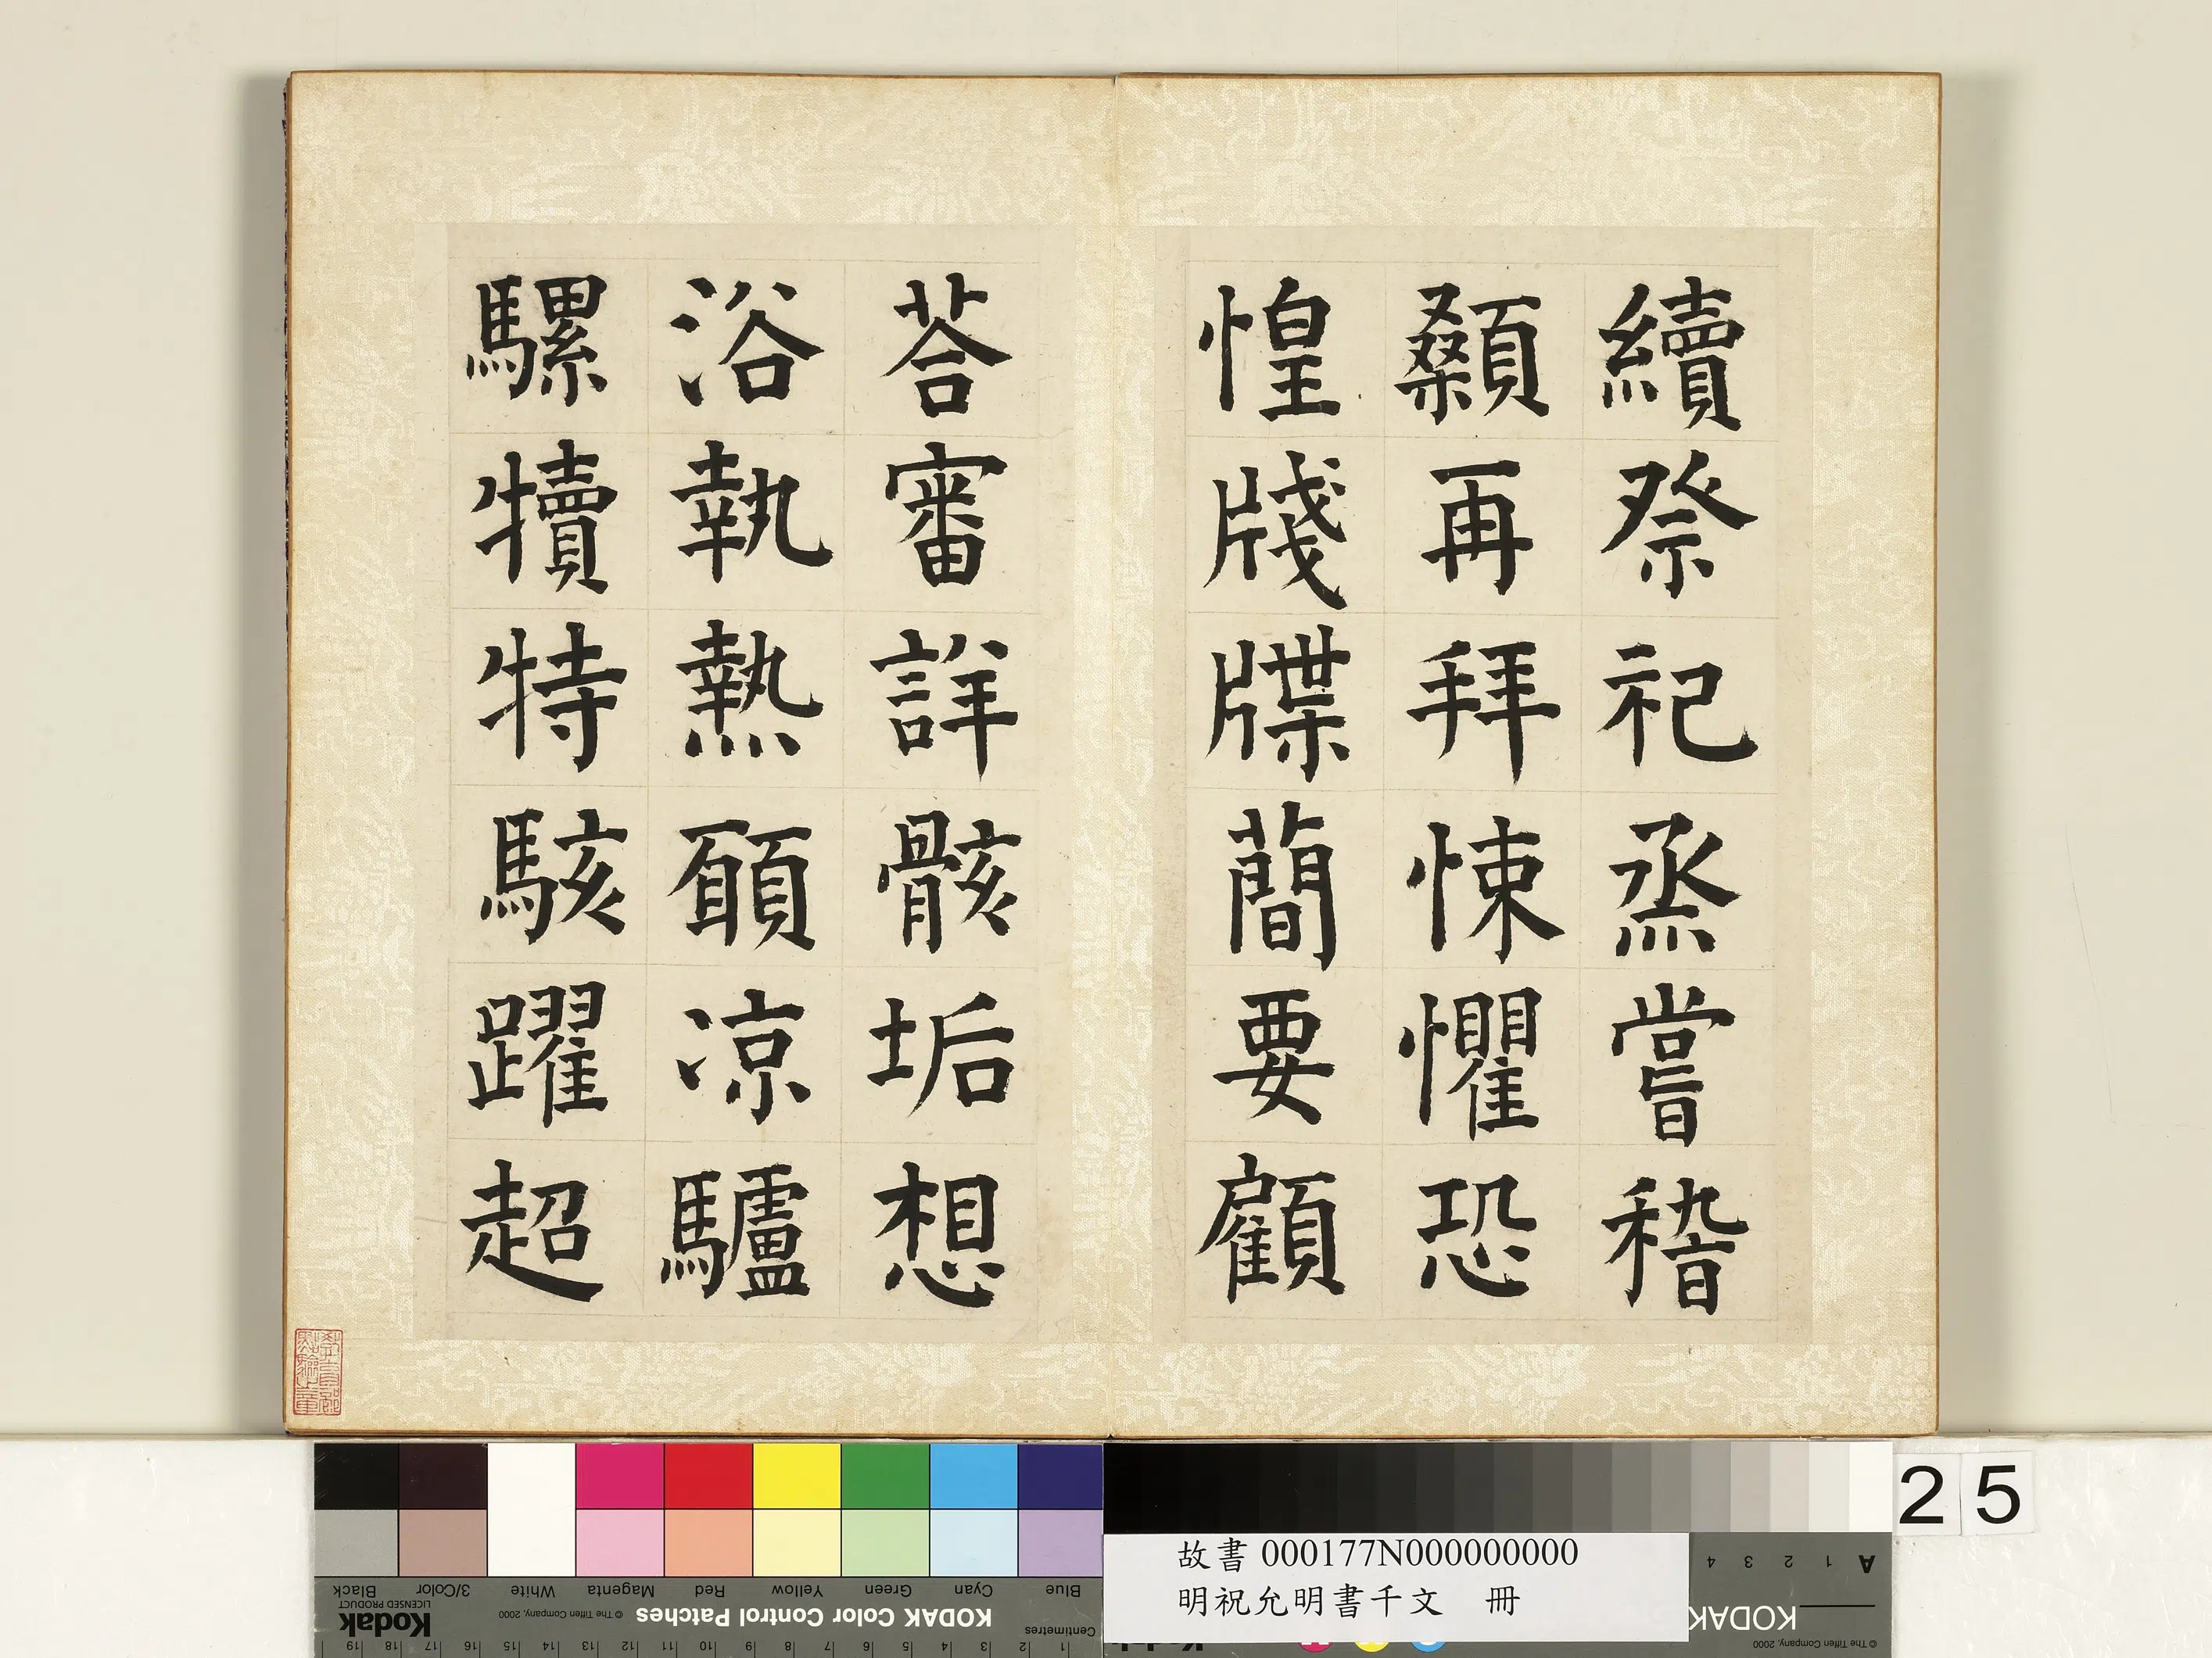 續祭祀烝嘗稽
顙再拜悚懼恐
惶牋牒蕳要顧
荅審詳骸垢想
浴執熱願凉驢
騾犢特駭躍超
25
故書 000177N000000000
明祝允明書千文 冊
Blue Cyan Green Yellow Red Magenta White 3/Color Black
KODAK Color Control Patches © The Tiffen Company, 2000 Kodak
LICENSED PRODUCT
Centimetres 1 2 3 4 5 6 7 8 9 10 11 12 13 14 15 16 17 18 19
A 1 2 3 4
KODAK
© The Tiffen Company, 2000
Kodak